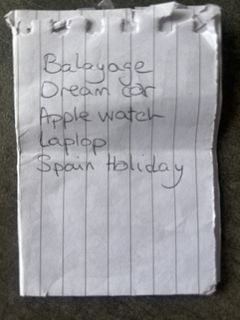 Balayage
Dream car
Apple watch
Laptop
Spain Holiday